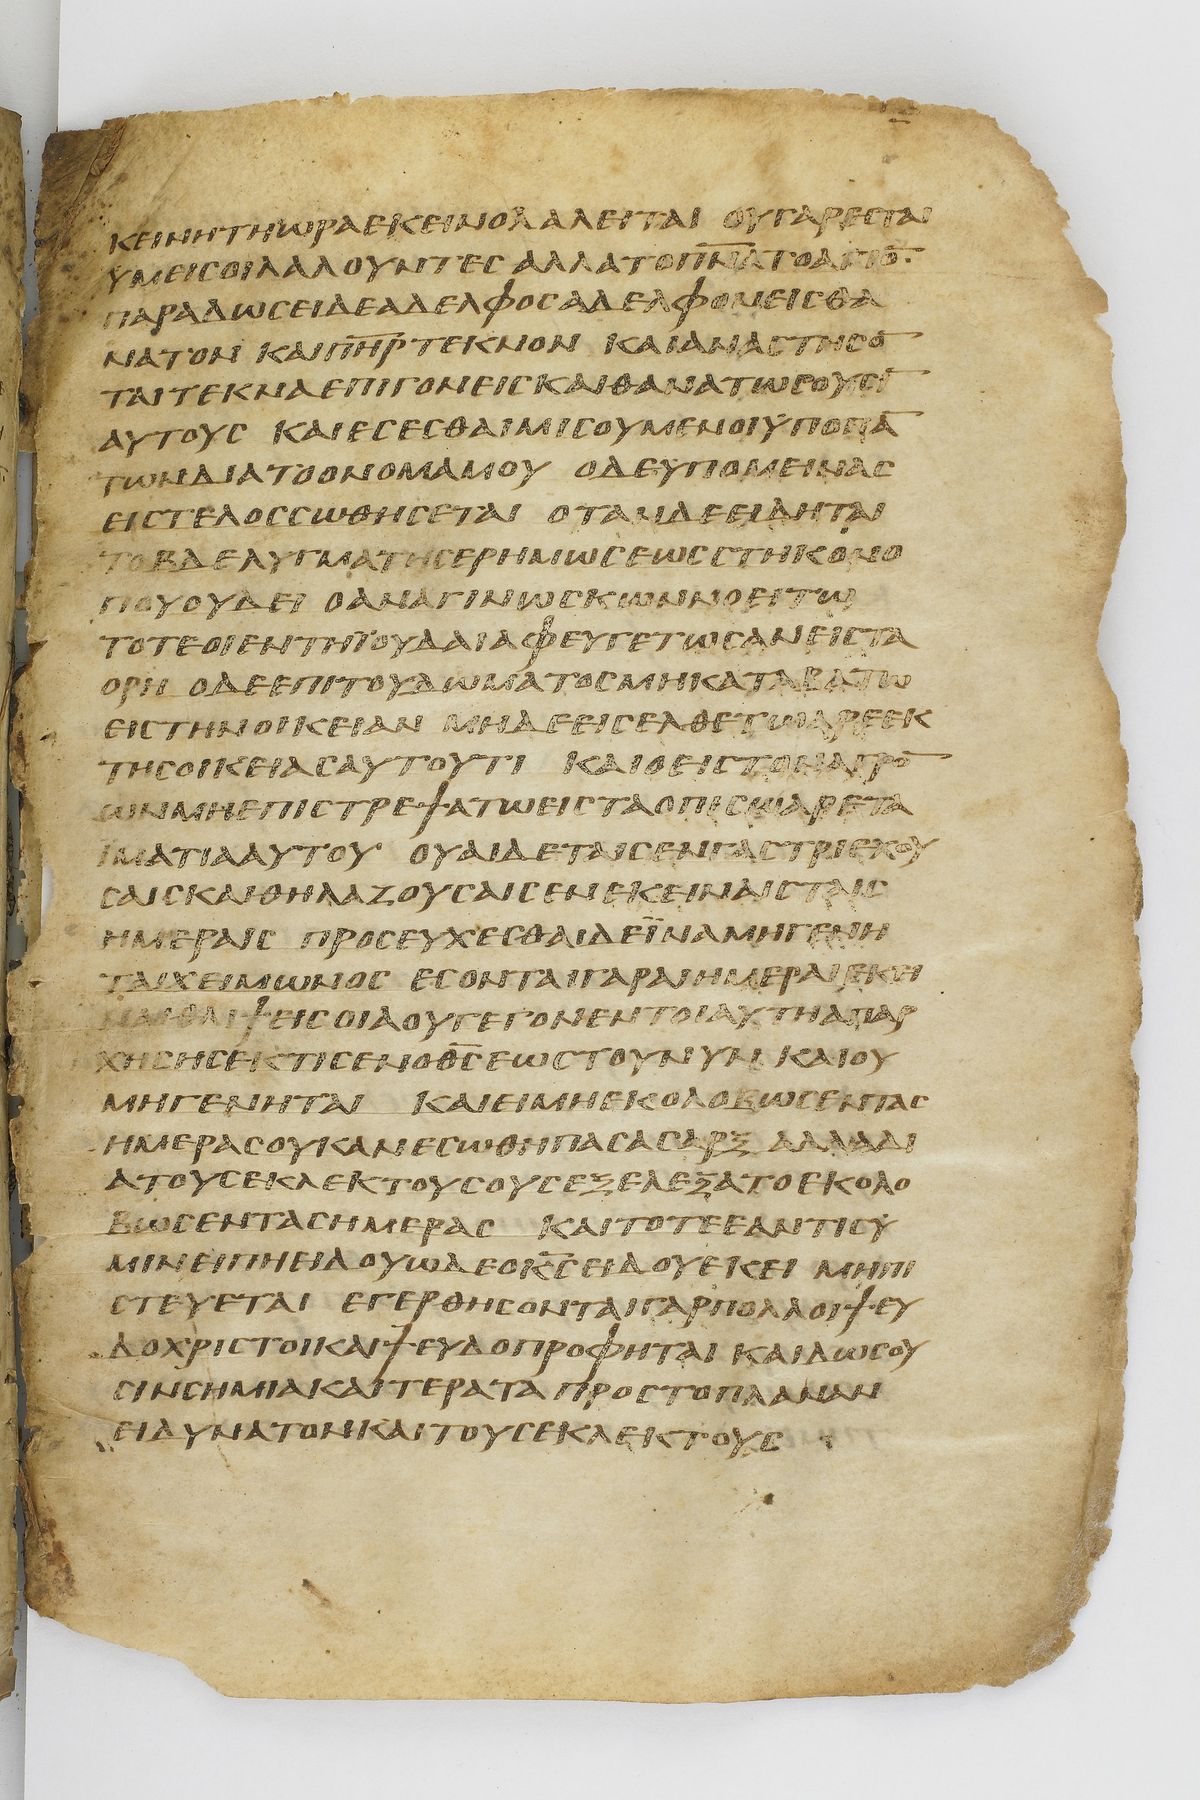 ΚΕΙΝΗΤΗΩΡΑΕΚΕΙΝΟΛΑΛΕΙΤΑΙ ΟΥΓΑΡΕΣΤΑΙ
ΥΜΕΙϹΟΙΛΑΛΟΥΝΤΕϹ ΑΛΛΑΤΟΠ̅Ν̅Α̅ΤΟΑΓΙΟ̅·
ΠΑΡΑΔΩϹΕΙΔΕΑΔΕΛΦΟϹΑΔΕΛΦΟΝΕΙϹΘΑ
ΝΑΤΟΝ ΚΑΙΠ̅Η̅Ρ̅ΤΕΚΝΟΝ ΚΑΙΑΝΑϹΤΗϹΟ̅
ΤΑΙΤΕΚΝΑΕΠΙΓΟΝΕΙϹΚΑΙΘΑΝΑΤΩϹΟΥϹΙ̅
ΑΥΤΟΥϹ ΚΑΙΕϹΕϹΘΑΙΜΙϹΟΥΜΕΝΟΙΫΠΟΠΑ̅
ΤΩΝΔΙΑΤΟΟΝΟΜΑΜΟΥ ΟΔΕΥΠΟΜΕΙΝΑϹ
ΕΙϹΤΕΛΟϹϹΩΘΗϹΕΤΑΙ ΟΤΑΝΔΕΕΙΔΗΤΑΙ
ΤΟΒΔΕΛΥΓΜΑΤΗϹΕΡΗΜΩϹΕΩϹϹΤΗΚΟΝΟ
ΠΟΥΟΥΔΕΙ ΟΑΝΑΓΙΝΩϹΚΩΝΝΟΕΙΤΩ
ΤΟΤΕΟΙΕΝΤΗΪΟΥΔΑΙΑΦΕΥΓΕΤΩϹΑΝΕΙϹΤΑ
ΟΡΗ ΟΔΕΕΠΙΤΟΥΔΩΜΑΤΟϹΜΗΚΑΤΑΒΑΤΩ
ΕΙϹΤΗΝΟΙΚΕΙΑΝ ΜΗΔΕΕΙϹΕΛΘΕΤΩΑΡΕΕΚ
ΤΗϹΟΙΚΕΙΑϹΑΥΤΟΥΤΙ ΚΑΙΟΕΙϹΤΟΝΑΓΡΟ̅
ΩΝΜΗΕΠΙϹΤΡΕΨΑΤΩΕΙϹΤΑΟΠΙϹΩΑΡΕΤΑ
ΙΜΑΤΙΑΑΥΤΟΥ ΟΥΑΙΔΕΤΑΙϹΕΝΓΑϹΤΡΙΕΧΟΥ
ϹΑΙϹΚΑΙΘΗΛΑΖΟΥϹΑΙϹΕΝΕΚΕΙΝΑΙϹΤΑΙϹ
ΗΜΕΡΑΙϹ ΠΡΟϹΕΥΧΕϹΘΑΙΔΕΪΝΑΜΗΓΕΝΗ
ΤΑΙΧΕΙΜΩΝΟϹ ΕϹΟΝΤΑΙΓΑΡΑΙΗΜΕΡΑΙΕΚΕΙ
ΝΑΙΘΛΙΨΕΙϹΟΙΑΟΥΓΕΓΟΝΕΝΤΟΙΑΥΤΗΑΠΑΡ
ΧΗϹΗϹΕΚΤΙϹΕΝΟΘ̅Ϲ̅ΕΩϹΤΟΥΝΥΝ ΚΑΙΟΥ
ΜΗΓΕΝΗΤΑΙ ΚΑΙΕΙΜΗΕΚΟΛΟΒΩϹΕΝΤΑϹ
ΗΜΕΡΑϹΟΥΚΑΝΕϹΩΘΗΠΑϹΑϹΑΡΞ ΑΛΛΑΔΙ
ΑΤΟΥϹΕΚΛΕΚΤΟΥϹΟΥϹΕΞΕΛΕΞΑΤΟΕΚΟΛΟ
ΒΩϹΕΝΤΑϹΗΜΕΡΑϹ ΚΑΙΤΟΤΕΕΑΝΤΙϹΫ
ΜΙΝΕΙΠΗΕΙΔΟΥΩΔΕΟΧ̅Ϲ̅ΕΙΔΟΥΕΚΕΙ ΜΗΠΙ
ϹΤΕΥΕΤΑΙ ΕΓΕΡΘΗϹΟΝΤΑΙΓΑΡΠΟΛΛΟΙΨΕΥ
ΔΟΧΡΙϹΤΟΙΚΑΙΨΕΥΔΟΠΡΟΦΗΤΑΙ ΚΑΙΔΩϹΟΥ
ϹΙΝϹΗΜΙΑΚΑΙΤΕΡΑΤΑ ΠΡΟϹΤΟΠΛΑΝΑΝ
ΕΙΔΥΝΑΤΟΝΚΑΙΤΟΥϹΕΚΛΕΚΤΟΥϹ